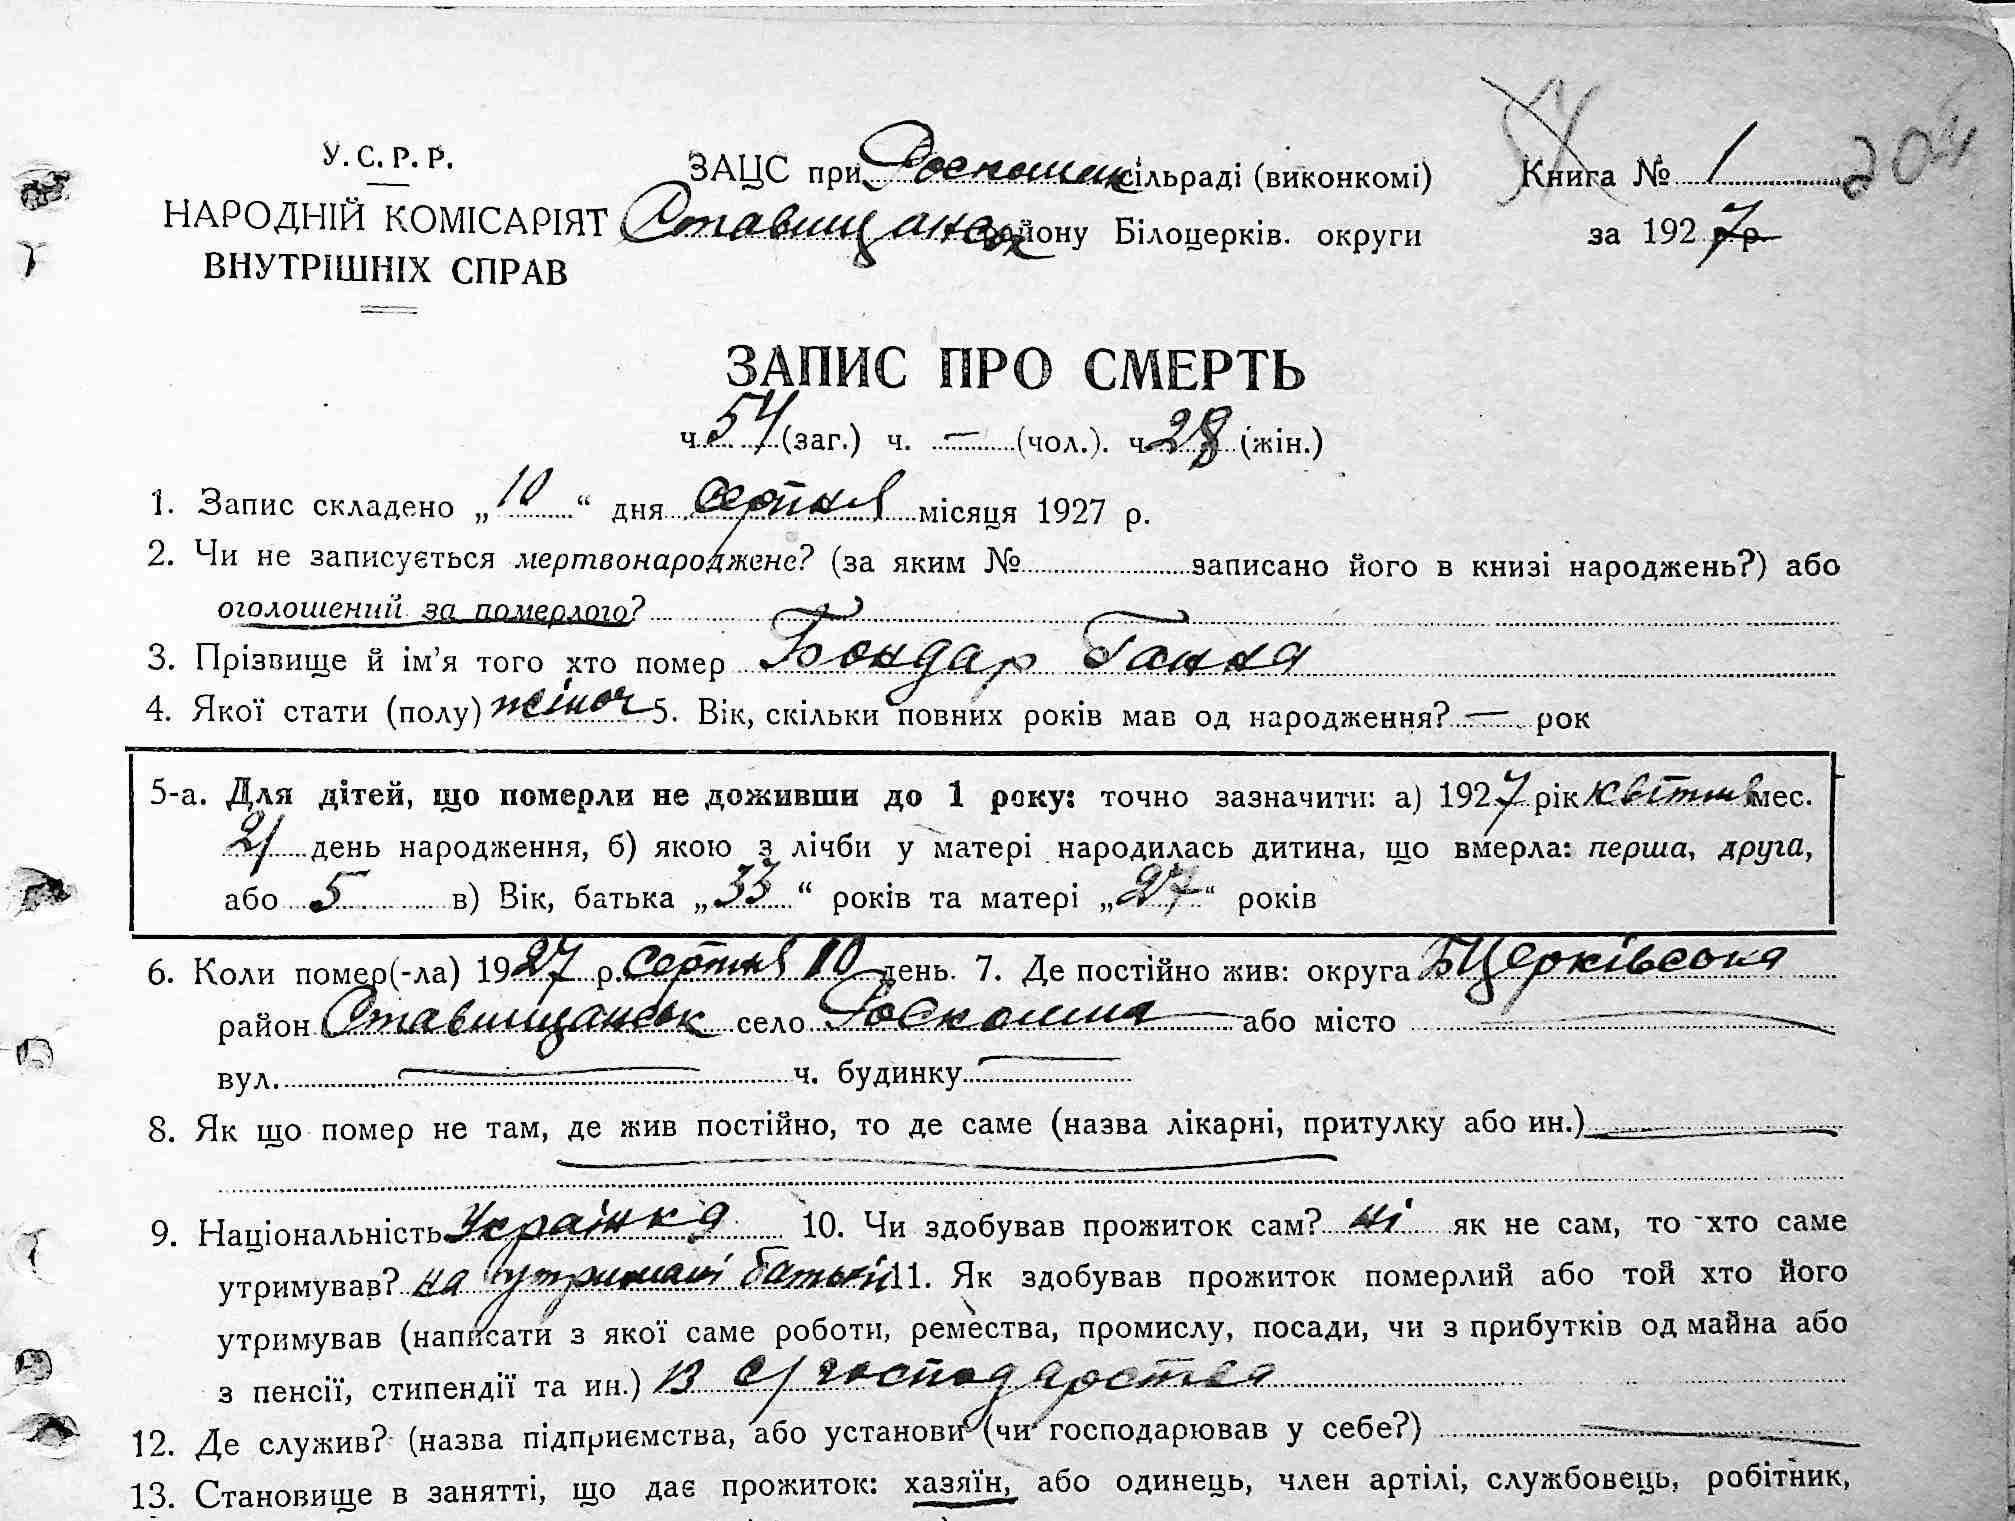 У. С. Р. Р.
НАРОДНІЙ КОМІСАРІЯТ
ВНУТРІШНІХ СПРАВ
ЗАЦС при Роскошан сільраді (виконкомі)
Ставищанськ району Білоцерків. округи
Книга № 1
204
за 1927 р.
ЗАПИС ПРО СМЕРТЬ
ч. 54 (заг.) ч. — (чол.). ч. 28 (жін.)
1. Запис складено „ 10 “ дня серпня місяця 1927 р.
2. Чи не записується мертвонароджене? (за яким № записано його в книзі народжень?) або
оголошений за померлого?
3. Прізвище й ім’я того хто помер Бондар Ганна
4. Якої стати (полу) жіноч 5. Вік, скільки повних років мав од народження? — рок
5-а. Для дітей, що померли не доживши до 1 року: точно зазначити: а) 1927 рік квітня мес.
21 день народження, б) якою з лічби у матері народилась дитина, що вмерла: перша, друга,
або 5 в) Вік, батька „ 33 “ років та матері „ 27 “ років
6. Коли помер(-ла) 1927 р. серпня 10 день. 7. Де постійно жив: округа БЦерківська
район Ставищанськ село Роскошна або місто —
вул. — ч. будинку —
8. Як що помер не там, де жив постійно, то де саме (назва лікарні, притулку або ин.) —
9. Національність Українка 10. Чи здобував прожиток сам? ні як не сам, то хто саме
утримував? на утриманні батьків 11. Як здобував прожиток померлий або той хто його
утримував (написати з якої саме роботи, ремества, промислу, посади, чи з прибутків од майна або
з пенсії, стипендії та ин.) із с/господарства
12. Де служив? (назва підприємства, або установи (чи господарював у себе?) —
13. Становище в занятті, що дає прожиток: хазяїн, або одинець, член артілі, службовець, робітник,